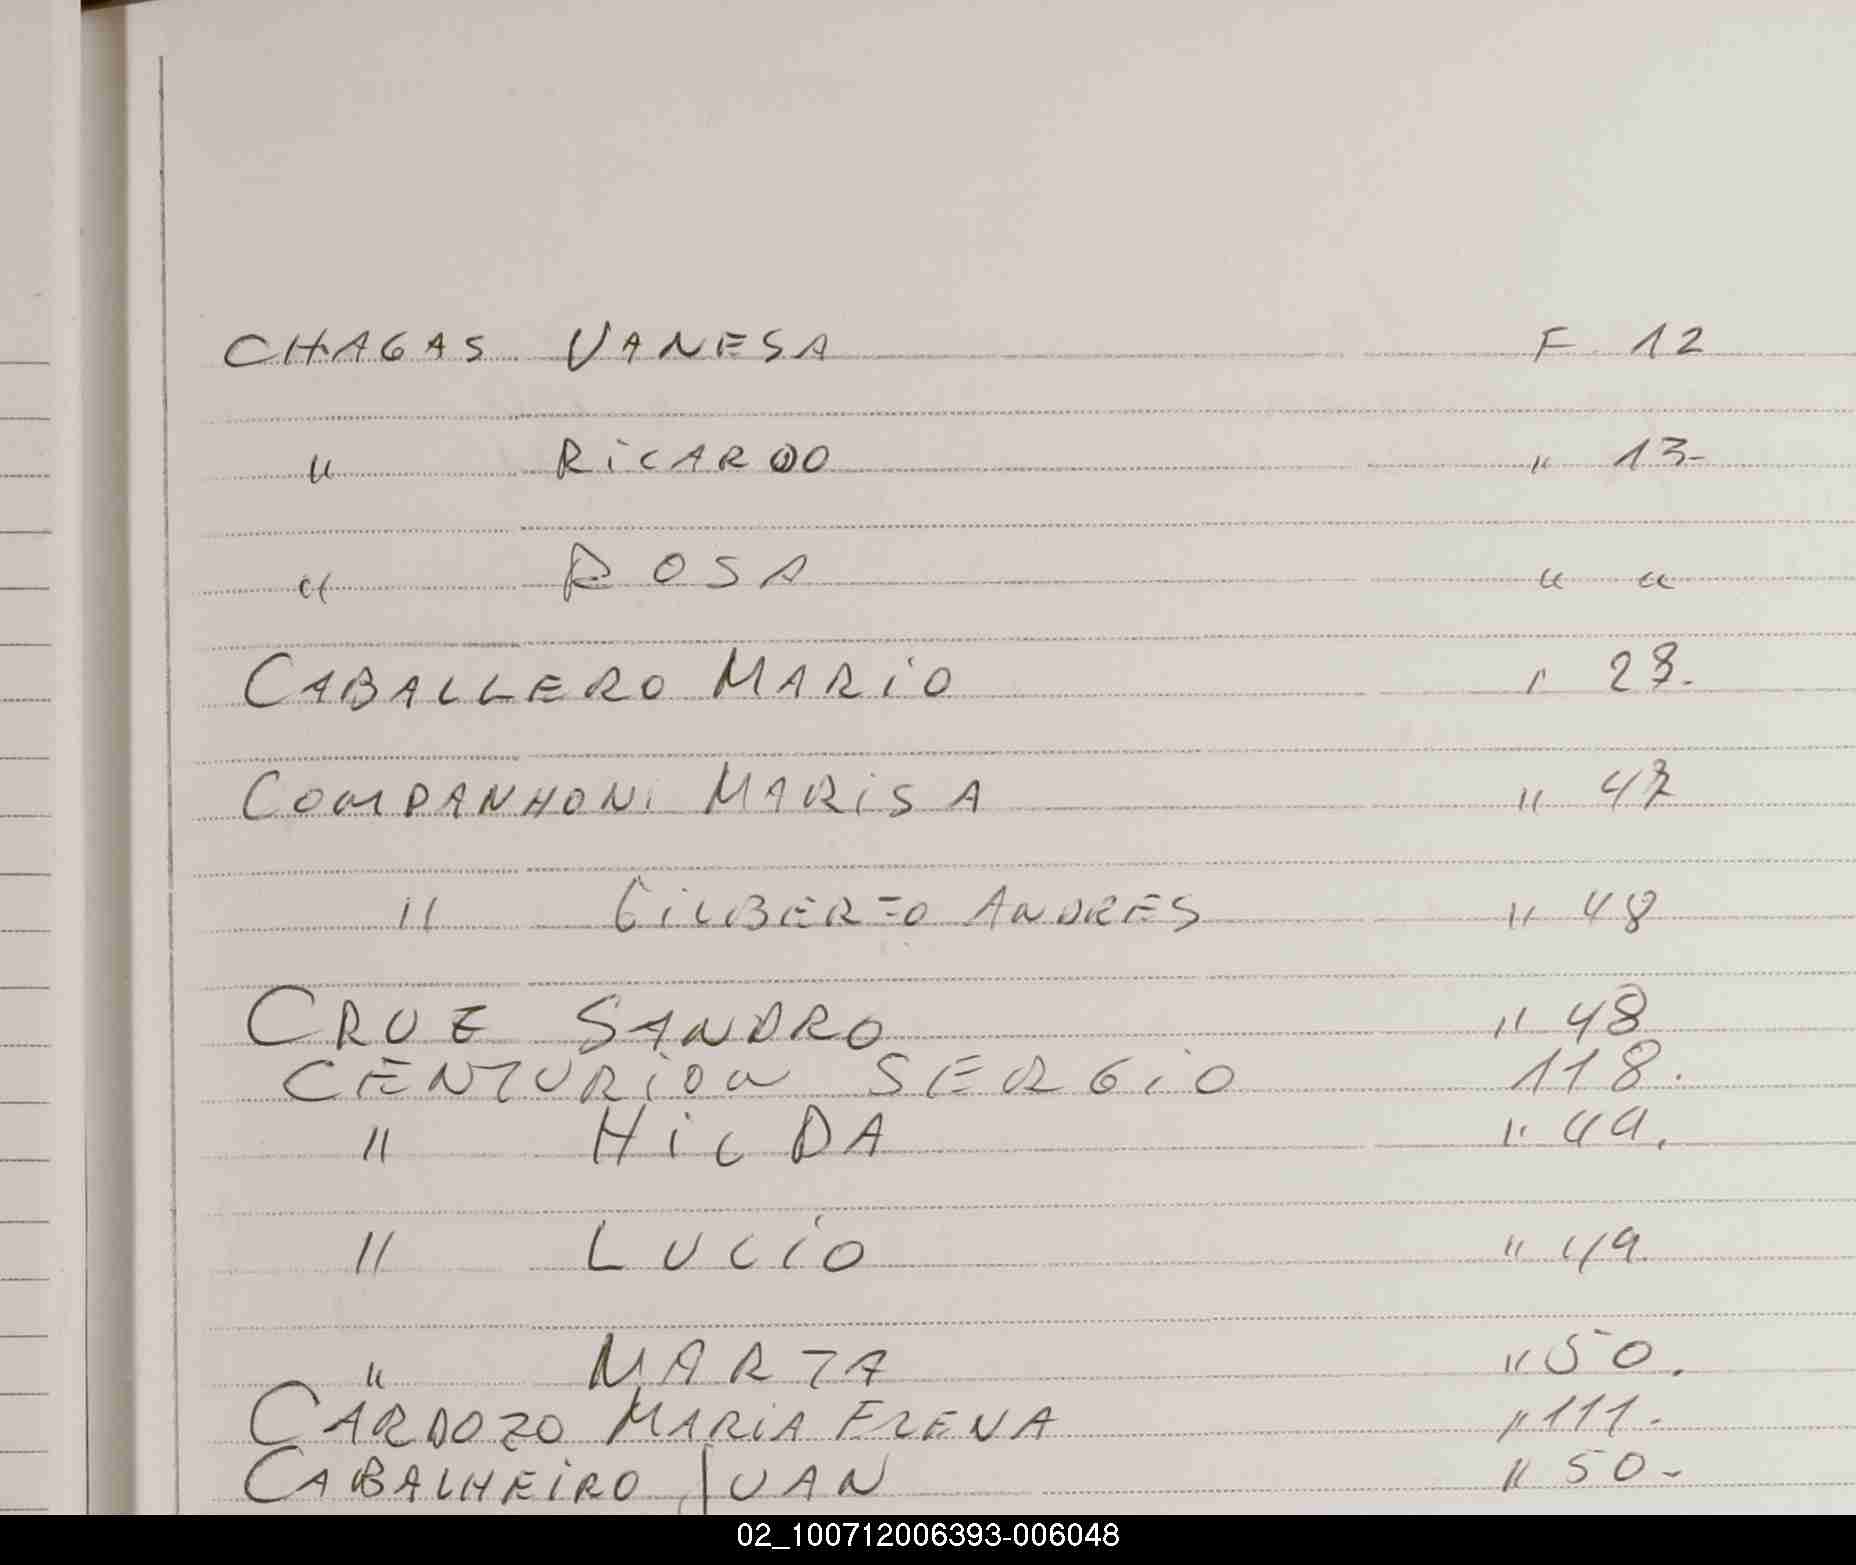 CHAGAS VANESA F 12
" RICARDO " 13-
" ROSA " "
CABALLERO MARIO " 23.
COMPANHONI MARISA " 47
" GILBERTO ANDRES " 48
CRUZ SANDRO " 48
CENTURION SERGIO 118.
" HILDA " 49.
" LUCIO " 49.
" MARTA " 50.
CARDOZO MARIA ELENA " 111-
CABALHEIRO JUAN " 50-
02_100712006393-006048